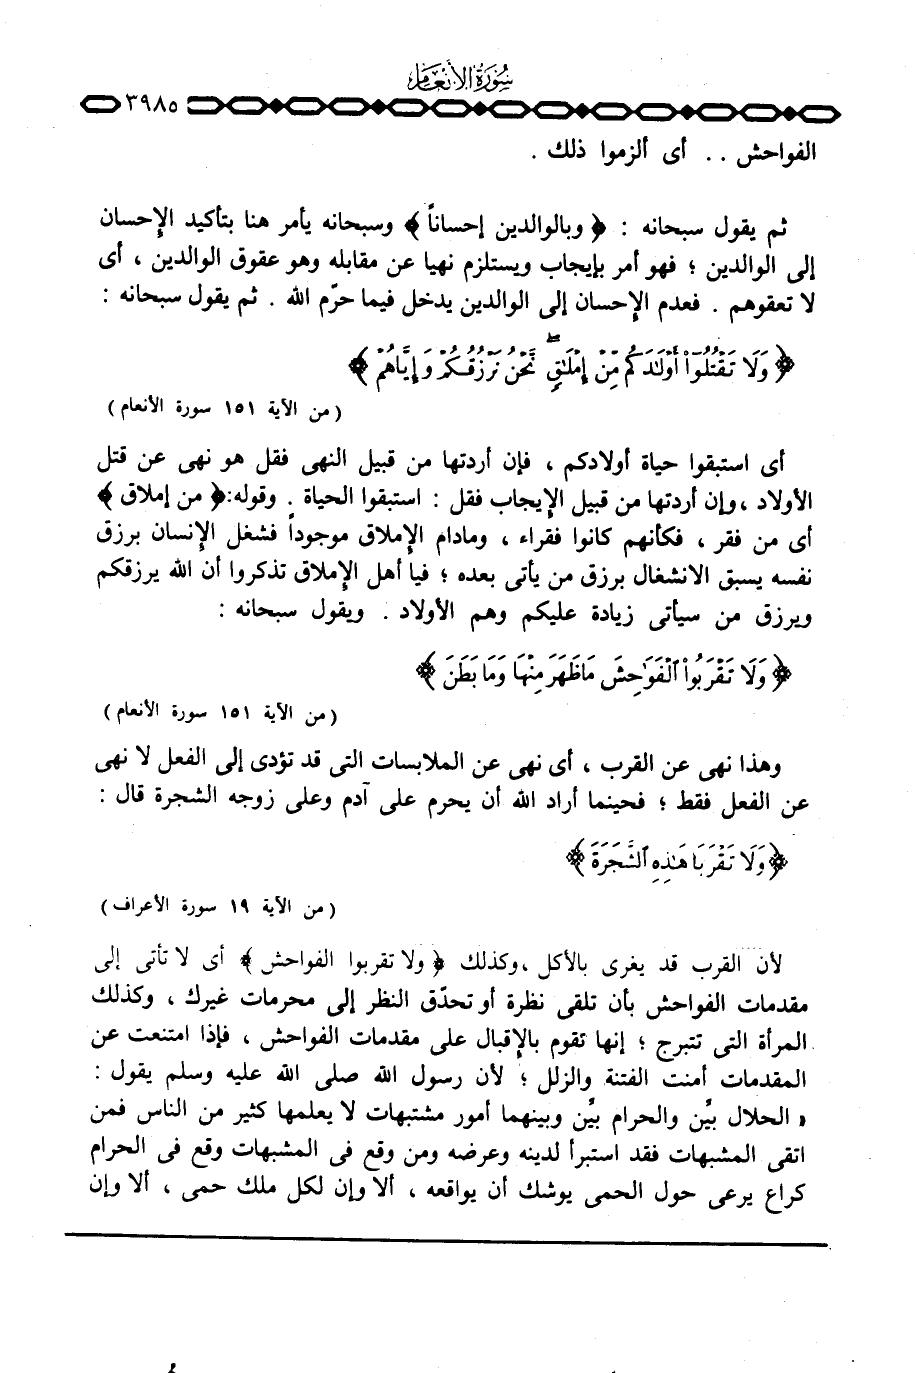 سُورَةُ الأَنْعَامِ
٣٩٨٥
الفواحش .. أى ألزموا ذلك .
ثم يقول سبحانه : ﴿ وبالوالدين إحساناً ﴾ وسبحانه يأمر هنا بتأكيد الإحسان
إلى الوالدين ؛ فهو أمر بإيجاب ويستلزم نهيا عن مقابله وهو عقوق الوالدين ، أى
لا تعقوهم . فعدم الإحسان إلى الوالدين يدخل فيما حرّم الله . ثم يقول سبحانه :
﴿ وَلَا تَقْتُلُوٓا۟ أَوْلَٰدَكُم مِّنْ إِمْلَٰقٍۖ نَّحْنُ نَرْزُقُكُمْ وَإِيَّاهُمْ ﴾
( من الآية ١٥١ سورة الأنعام )
أى استبقوا حياة أولادكم ، فإن أردتها من قبيل النهى فقل هو نهى عن قتل
الأولاد ، وإن أردتها من قبيل الإيجاب فقل : استبقوا الحياة . وقوله: ﴿ من إملاق ﴾
أى من فقر ، فكأنهم كانوا فقراء ، ومادام الإملاق موجوداً فشغل الإنسان برزق
نفسه يسبق الانشغال برزق من يأتى بعده ؛ فيا أهل الإملاق تذكروا أن الله يرزقكم
ويرزق من سيأتى زيادة عليكم وهم الأولاد . ويقول سبحانه :
﴿ وَلَا تَقْرَبُوا۟ ٱلْفَوَٰحِشَ مَا ظَهَرَ مِنْهَا وَمَا بَطَنَ ﴾
( من الآية ١٥١ سورة الأنعام )
وهذا نهى عن القرب ، أى نهى عن الملابسات التى قد تؤدى إلى الفعل لا نهى
عن الفعل فقط ؛ فحينما أراد الله أن يحرم على آدم وعلى زوجه الشجرة قال :
﴿ وَلَا تَقْرَبَا هَٰذِهِ ٱلشَّجَرَةَ ﴾
( من الآية ١٩ سورة الأعراف )
لأن القرب قد يغرى بالأكل ، وكذلك ﴿ ولا تقربوا الفواحش ﴾ أى لا تأتى إلى
مقدمات الفواحش بأن تلقى نظرة أو تحدّق النظر إلى محرمات غيرك ، وكذلك
المرأة التى تتبرج ؛ إنها تقوم بالإقبال على مقدمات الفواحش ، فإذا امتنعت عن
المقدمات أمنت الفتنة والزلل ؛ لأن رسول الله صلى الله عليه وسلم يقول :
« الحلال بيِّن والحرام بيِّن وبينهما أمور مشتبهات لا يعلمها كثير من الناس فمن
اتقى المشبهات فقد استبرأ لدينه وعرضه ومن وقع فى المشبهات وقع فى الحرام
كراع يرعى حول الحمى يوشك أن يواقعه ، ألا وإن لكل ملك حمى ، ألا وإن